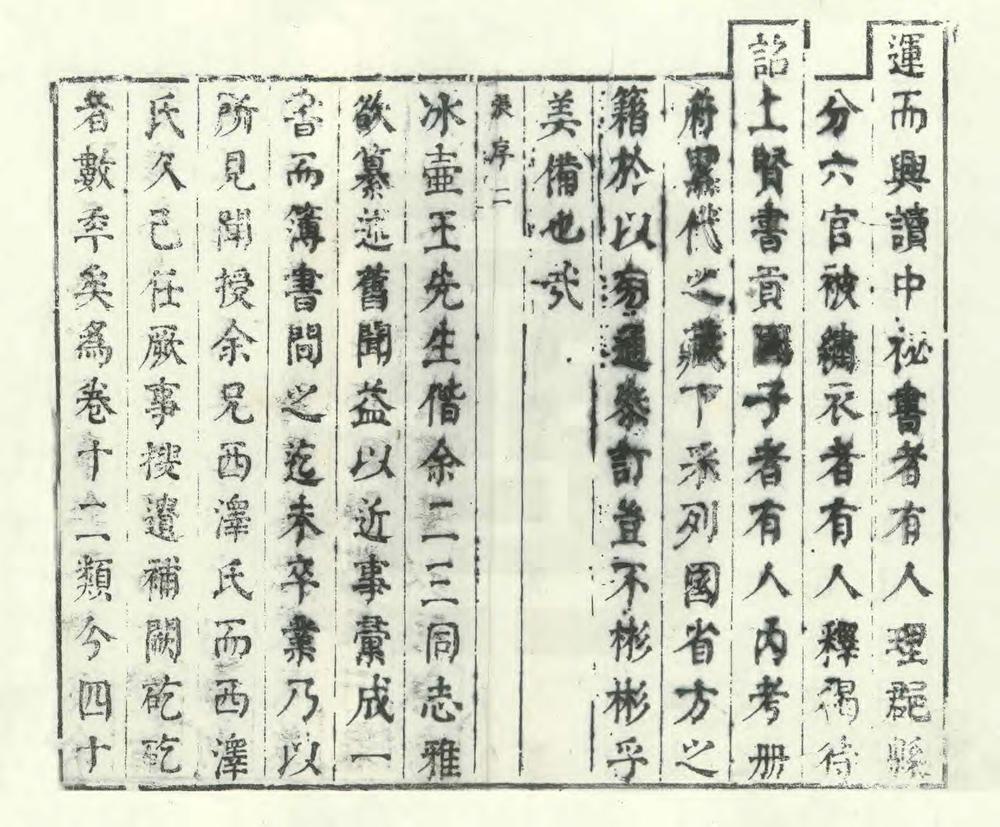 運而興讀中祕書者有人理郡縣
分六官被繡衣者有人釋褐待
詔上賢書貢國子者有人內考册
府累代之藏下采列國省方之
籍於以旁通參訂豈不彬彬乎
美備也哉
張序 二
冰壺王先生偕余二三同志雅
欲纂述舊聞益以近事彚成一
書而簿書問之迄未卒業乃以
所見聞授余兄西澤氏而西澤
氏久己任厥事搜遺補闕矻矻
者數季矣爲卷十二類今四十